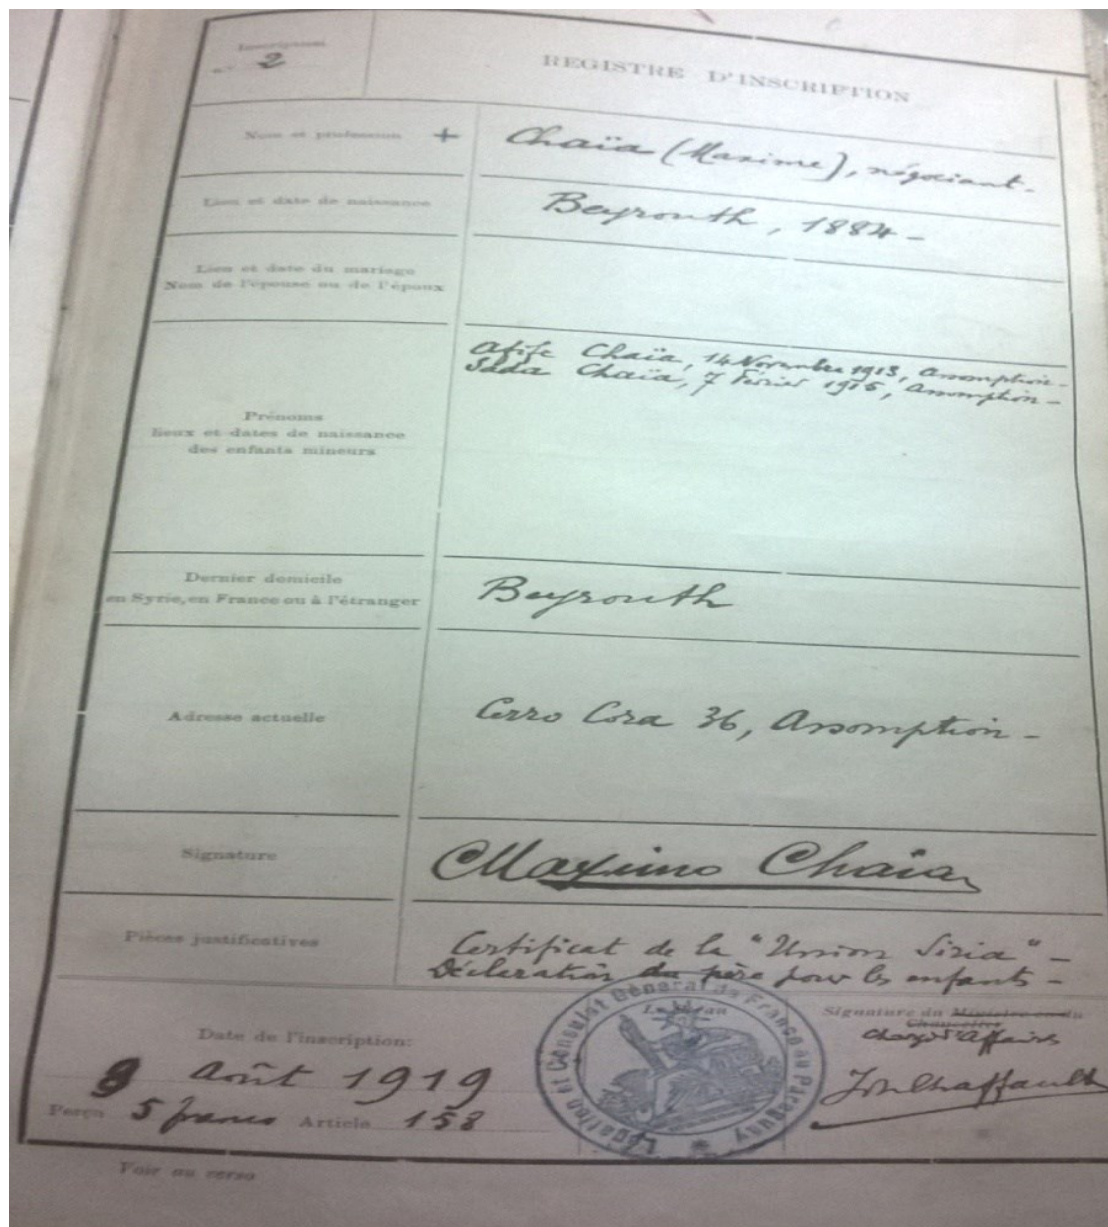 Inscription
N° 2
REGISTRE D'INSCRIPTION
Nom et profession +
Chaïa (Maxime), négociant.
Lieu et date de naissance
Beyrouth, 1884 -
Lieu et date du mariage
Nom de l'épouse ou de l'époux
Afife Chaïa, 14 Novembre 1913, Assomption -
Sada Chaïa, 7 Février 1915, Assomption -
Prénoms
lieux et dates de naissance
des enfants mineurs
Dernier domicile
en Syrie, en France ou à l'étranger
Beyrouth
Adresse actuelle
Cerro Cora 36, Assomption -
Signature
Maximo Chaia
Pièces justificatives
Certificat de la "Union Siria" -
Déclaration du père pour les enfants -
Date de l'inscription:
9 Août 1919
Perçu 5 francs Article 158
Légation et Consulat Général de France au Paraguay
Signature du Ministre ou du
Chancelier
chargé d'affaires
Voir au verso